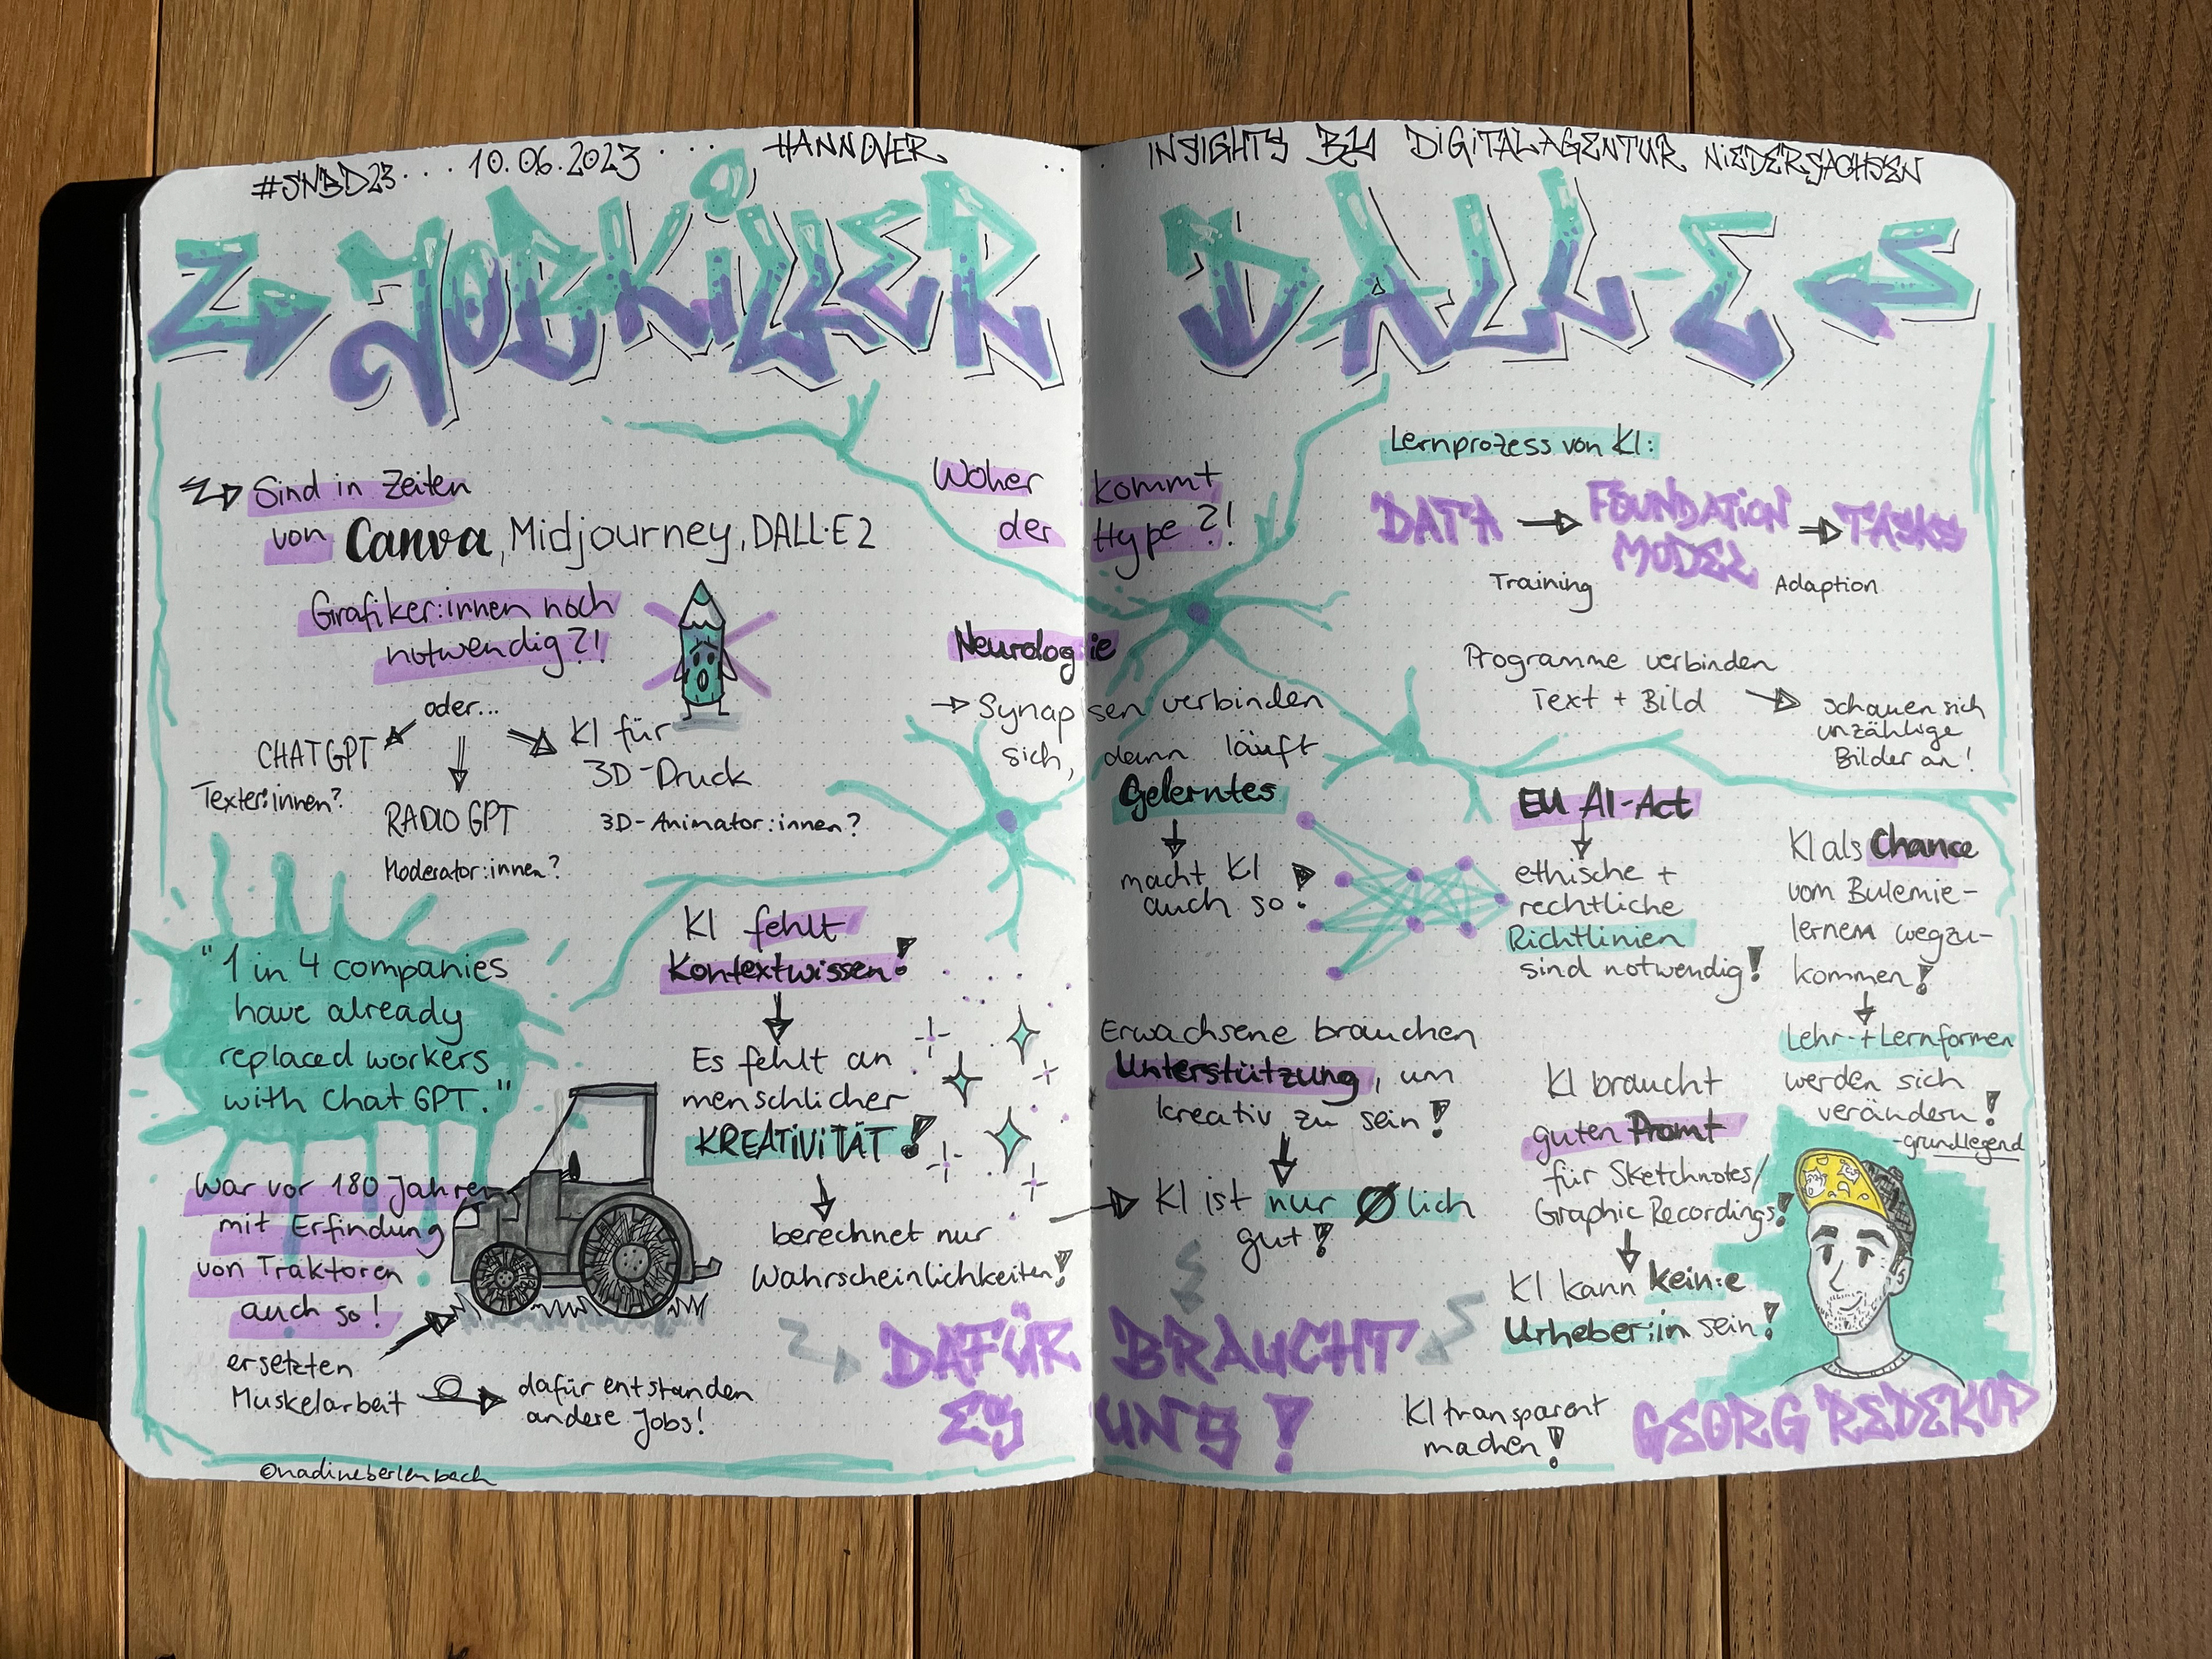 #SNBD23... 10.06.2023 ... HANNOVER
.. INSIGHTS BY DIGITALAGENTUR NIEDERSACHSEN
JOBKILLER DALL-E
Sind in Zeiten
von Canva, Midjourney, DALL·E 2
Grafiker:innen noch
notwendig?!
oder...
CHATGPT
Texter:innen?
RADIO GPT
Moderator:innen?
KI für
3D-Druck
3D-Animator:innen?
"1 in 4 companies
have already
replaced workers
with Chat GPT."
War vor 180 Jahren
mit Erfindung
von Traktoren
auch so!
ersetzten
Muskelarbeit
dafür entstanden
andere Jobs!
©nadineberlenbach
KI fehlt
Kontextwissen!
Es fehlt an
menschlicher
KREATIVITÄT!
berechnet nur
Wahrscheinlichkeiten!
Woher kommt
der Hype?!
Neurologie
→ Synapsen verbinden
sich, dann läuft
Gelerntes
macht KI
auch so!
Erwachsene brauchen
Unterstützung, um
kreativ zu sein!
KI ist nur Ølich
gut!
DAFÜR BRAUCHT
ES UNS!
Lernprozess von KI:
DATA → FOUNDATION MODEL → TASKS
Training Adaption
Programme verbinden
Text + Bild
schauen sich
unzählige
Bilder an!
EU AI-Act
ethische +
rechtliche
Richtlinien
sind notwendig!
KI als Chance
vom Bulemie-
lernen wegzu-
kommen!
Lehr- + Lernformen
werden sich
verändern!
-grundlegend
KI braucht
guten Promt
für Sketchnotes/
Graphic Recordings!
KI kann kein:e
Urheber:in sein!
KI transparent
machen!
GEORG REDEKOP